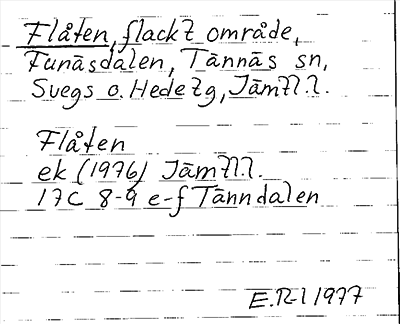 Flåten, flackt område,
Funäsdalen, Tännäs sn,
Svegs o. Hede tg, Jämtl. l.
Flåten
ek (1976) Jämtl. l.
17C 8-9 e-f Tänndalen
E.R-l 1977